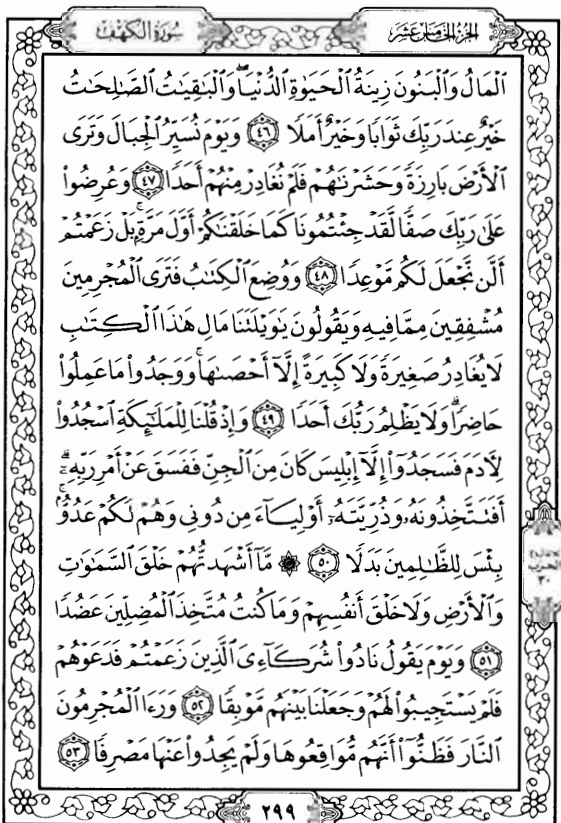 سُورَةُ الكَهْفِ
الجُزْءُ الخَامِسَ عَشَرَ
ٱلْمَالُ وَٱلْبَنُونَ زِينَةُ ٱلْحَيَوٰةِ ٱلدُّنْيَاۖ وَٱلْبَٰقِيَٰتُ ٱلصَّٰلِحَٰتُ
خَيْرٌ عِندَ رَبِّكَ ثَوَابًا وَخَيْرٌ أَمَلًا ٤٦ وَيَوْمَ نُسَيِّرُ ٱلْجِبَالَ وَتَرَى
ٱلْأَرْضَ بَارِزَةً وَحَشَرْنَٰهُمْ فَلَمْ نُغَادِرْ مِنْهُمْ أَحَدًا ٤٧ وَعُرِضُوا۟
عَلَىٰ رَبِّكَ صَفًّا لَّقَدْ جِئْتُمُونَا كَمَا خَلَقْنَٰكُمْ أَوَّلَ مَرَّةٍۭۚ بَلْ زَعَمْتُمْ
أَلَّن نَّجْعَلَ لَكُم مَّوْعِدًا ٤٨ وَوُضِعَ ٱلْكِتَٰبُ فَتَرَى ٱلْمُجْرِمِينَ
مُشْفِقِينَ مِمَّا فِيهِ وَيَقُولُونَ يَٰوَيْلَتَنَا مَالِ هَٰذَا ٱلْكِتَٰبِ
لَا يُغَادِرُ صَغِيرَةً وَلَا كَبِيرَةً إِلَّآ أَحْصَىٰهَاۚ وَوَجَدُوا۟ مَا عَمِلُوا۟
حَاضِرًاۗ وَلَا يَظْلِمُ رَبُّكَ أَحَدًا ٤٩ وَإِذْ قُلْنَا لِلْمَلَٰٓئِكَةِ ٱسْجُدُوا۟
لِءَادَمَ فَسَجَدُوٓا۟ إِلَّآ إِبْلِيسَ كَانَ مِنَ ٱلْجِنِّ فَفَسَقَ عَنْ أَمْرِ رَبِّهِۦٓۗ
أَفَتَتَّخِذُونَهُۥ وَذُرِّيَّتَهُۥٓ أَوْلِيَآءَ مِن دُونِى وَهُمْ لَكُمْ عَدُوٌّۢۚ
بِئْسَ لِلظَّٰلِمِينَ بَدَلًا ٥٠ ۞ مَّآ أَشْهَدتُّهُمْ خَلْقَ ٱلسَّمَٰوَٰتِ
وَٱلْأَرْضِ وَلَا خَلْقَ أَنفُسِهِمْ وَمَا كُنتُ مُتَّخِذَ ٱلْمُضِلِّينَ عَضُدًا
٥١ وَيَوْمَ يَقُولُ نَادُوا۟ شُرَكَآءِىَ ٱلَّذِينَ زَعَمْتُمْ فَدَعَوْهُمْ
فَلَمْ يَسْتَجِيبُوا۟ لَهُمْ وَجَعَلْنَا بَيْنَهُم مَّوْبِقًا ٥٢ وَرَءَا ٱلْمُجْرِمُونَ
ٱلنَّارَ فَظَنُّوٓا۟ أَنَّهُم مُّوَاقِعُوهَا وَلَمْ يَجِدُوا۟ عَنْهَا مَصْرِفًا ٥٣
الحزب
٣٠
٢٩٩